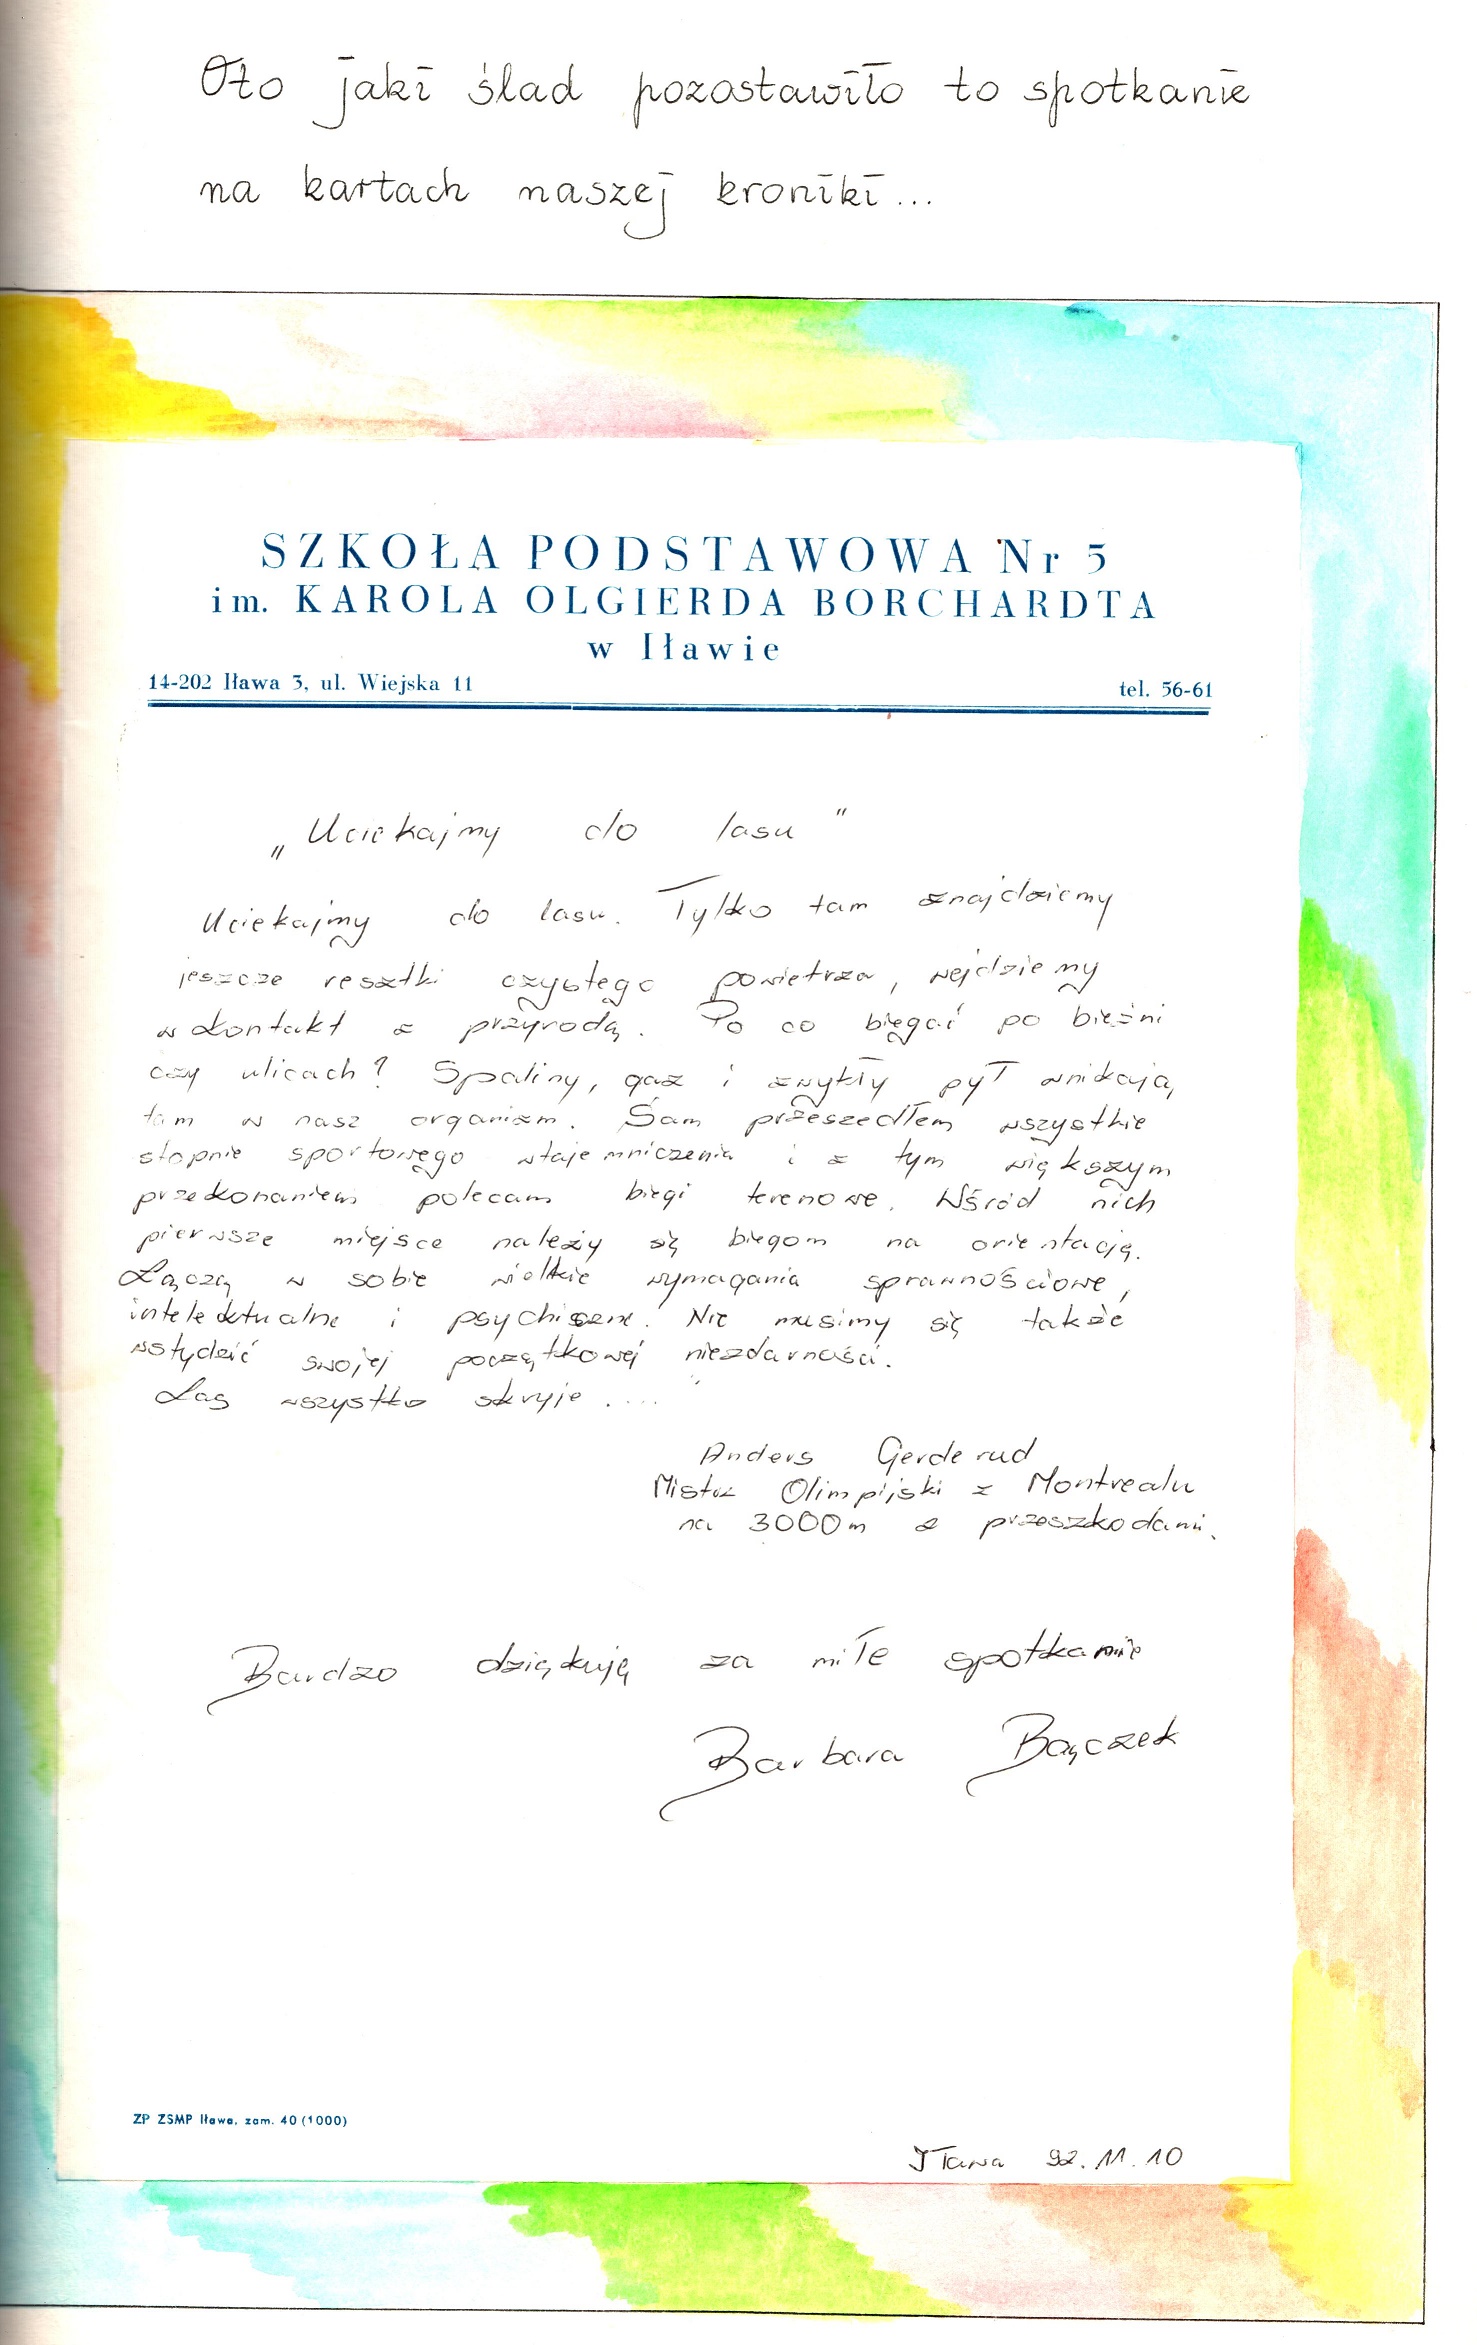 Oto jaki ślad pozostawiło to spotkanie
na kartach naszej kroniki...
SZKOŁA PODSTAWOWA Nr 5
im. KAROLA OLGIERDA BORCHARDTA
w Iławie
14-202 Iława 3, ul. Wiejska 11 tel. 56-61
„Uciekajmy do lasu"
Uciekajmy do lasu. Tylko tam znajdziemy
jeszcze resztki czystego powietrza, wejdziemy
w kontakt z przyrodą. Po co biegać po bieżni
czy ulicach? Spaliny, gaz i zwykły pył wnikają
tam w nasz organizm. Sam przeszedłem wszystkie
stopnie sportowego wtajemniczenia i z tym większym
przekonaniem polecam biegi terenowe. Wśród nich
pierwsze miejsce należy się biegom na orientację.
Łączą w sobie wielkie wymagania sprawnościowe,
intelektualne i psychiczne. Nie musimy się także
wstydzić swojej początkowej niezdarności.
Las wszystko skryje....
Anders Gerderud
Mistrz Olimpijski z Montrealu
na 3000m z przeszkodami.
Bardzo dziękuję za miłe spotkanie
Barbara Bączek
ZP ZSMP Iława, zam. 40 (1000)
Iława 92.11.10